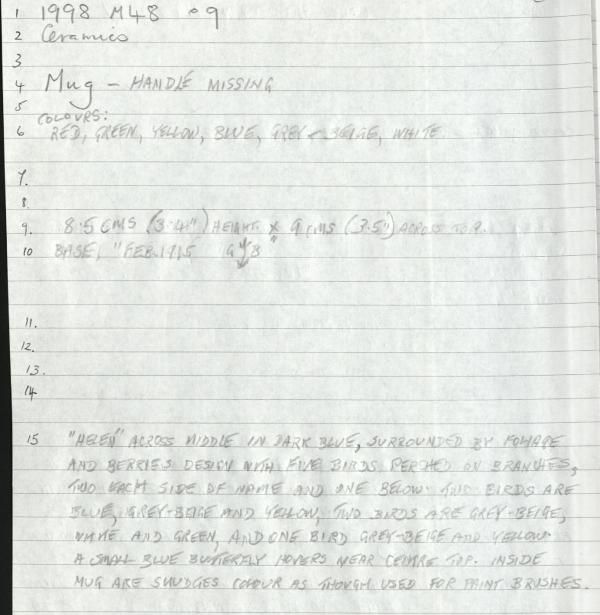 1 1998 M48 •9
2 Ceramics
3
4 Mug – HANDLE MISSING
5
COLOURS:
6 RED, GREEN, YELLOW, BLUE, GREY-BEIGE, WHITE
7.
8.
9. 8.5 CMS (3.4") HEIGHT. x 9 CMS (3.5") ACROSS TOP.
10 BASE, "FEB. 1915 G B"
11.
12.
13.
14
15 "HELEN" ACROSS MIDDLE IN DARK BLUE, SURROUNDED BY FOLIAGE
AND BERRIES DESIGN WITH FIVE BIRDS PERCHED ON BRANCHES,
TWO EACH SIDE OF NAME AND ONE BELOW. TWO BIRDS ARE
BLUE, GREY-BEIGE AND YELLOW, TWO BIRDS ARE GREY-BEIGE,
WHITE AND GREEN, AND ONE BIRD GREY-BEIGE AND YELLOW.
A SMALL BLUE BUTTERFLY HOVERS NEAR CENTRE TOP. INSIDE
MUG ARE SMUDGES COLOUR AS THOUGH USED FOR PAINT BRUSHES.